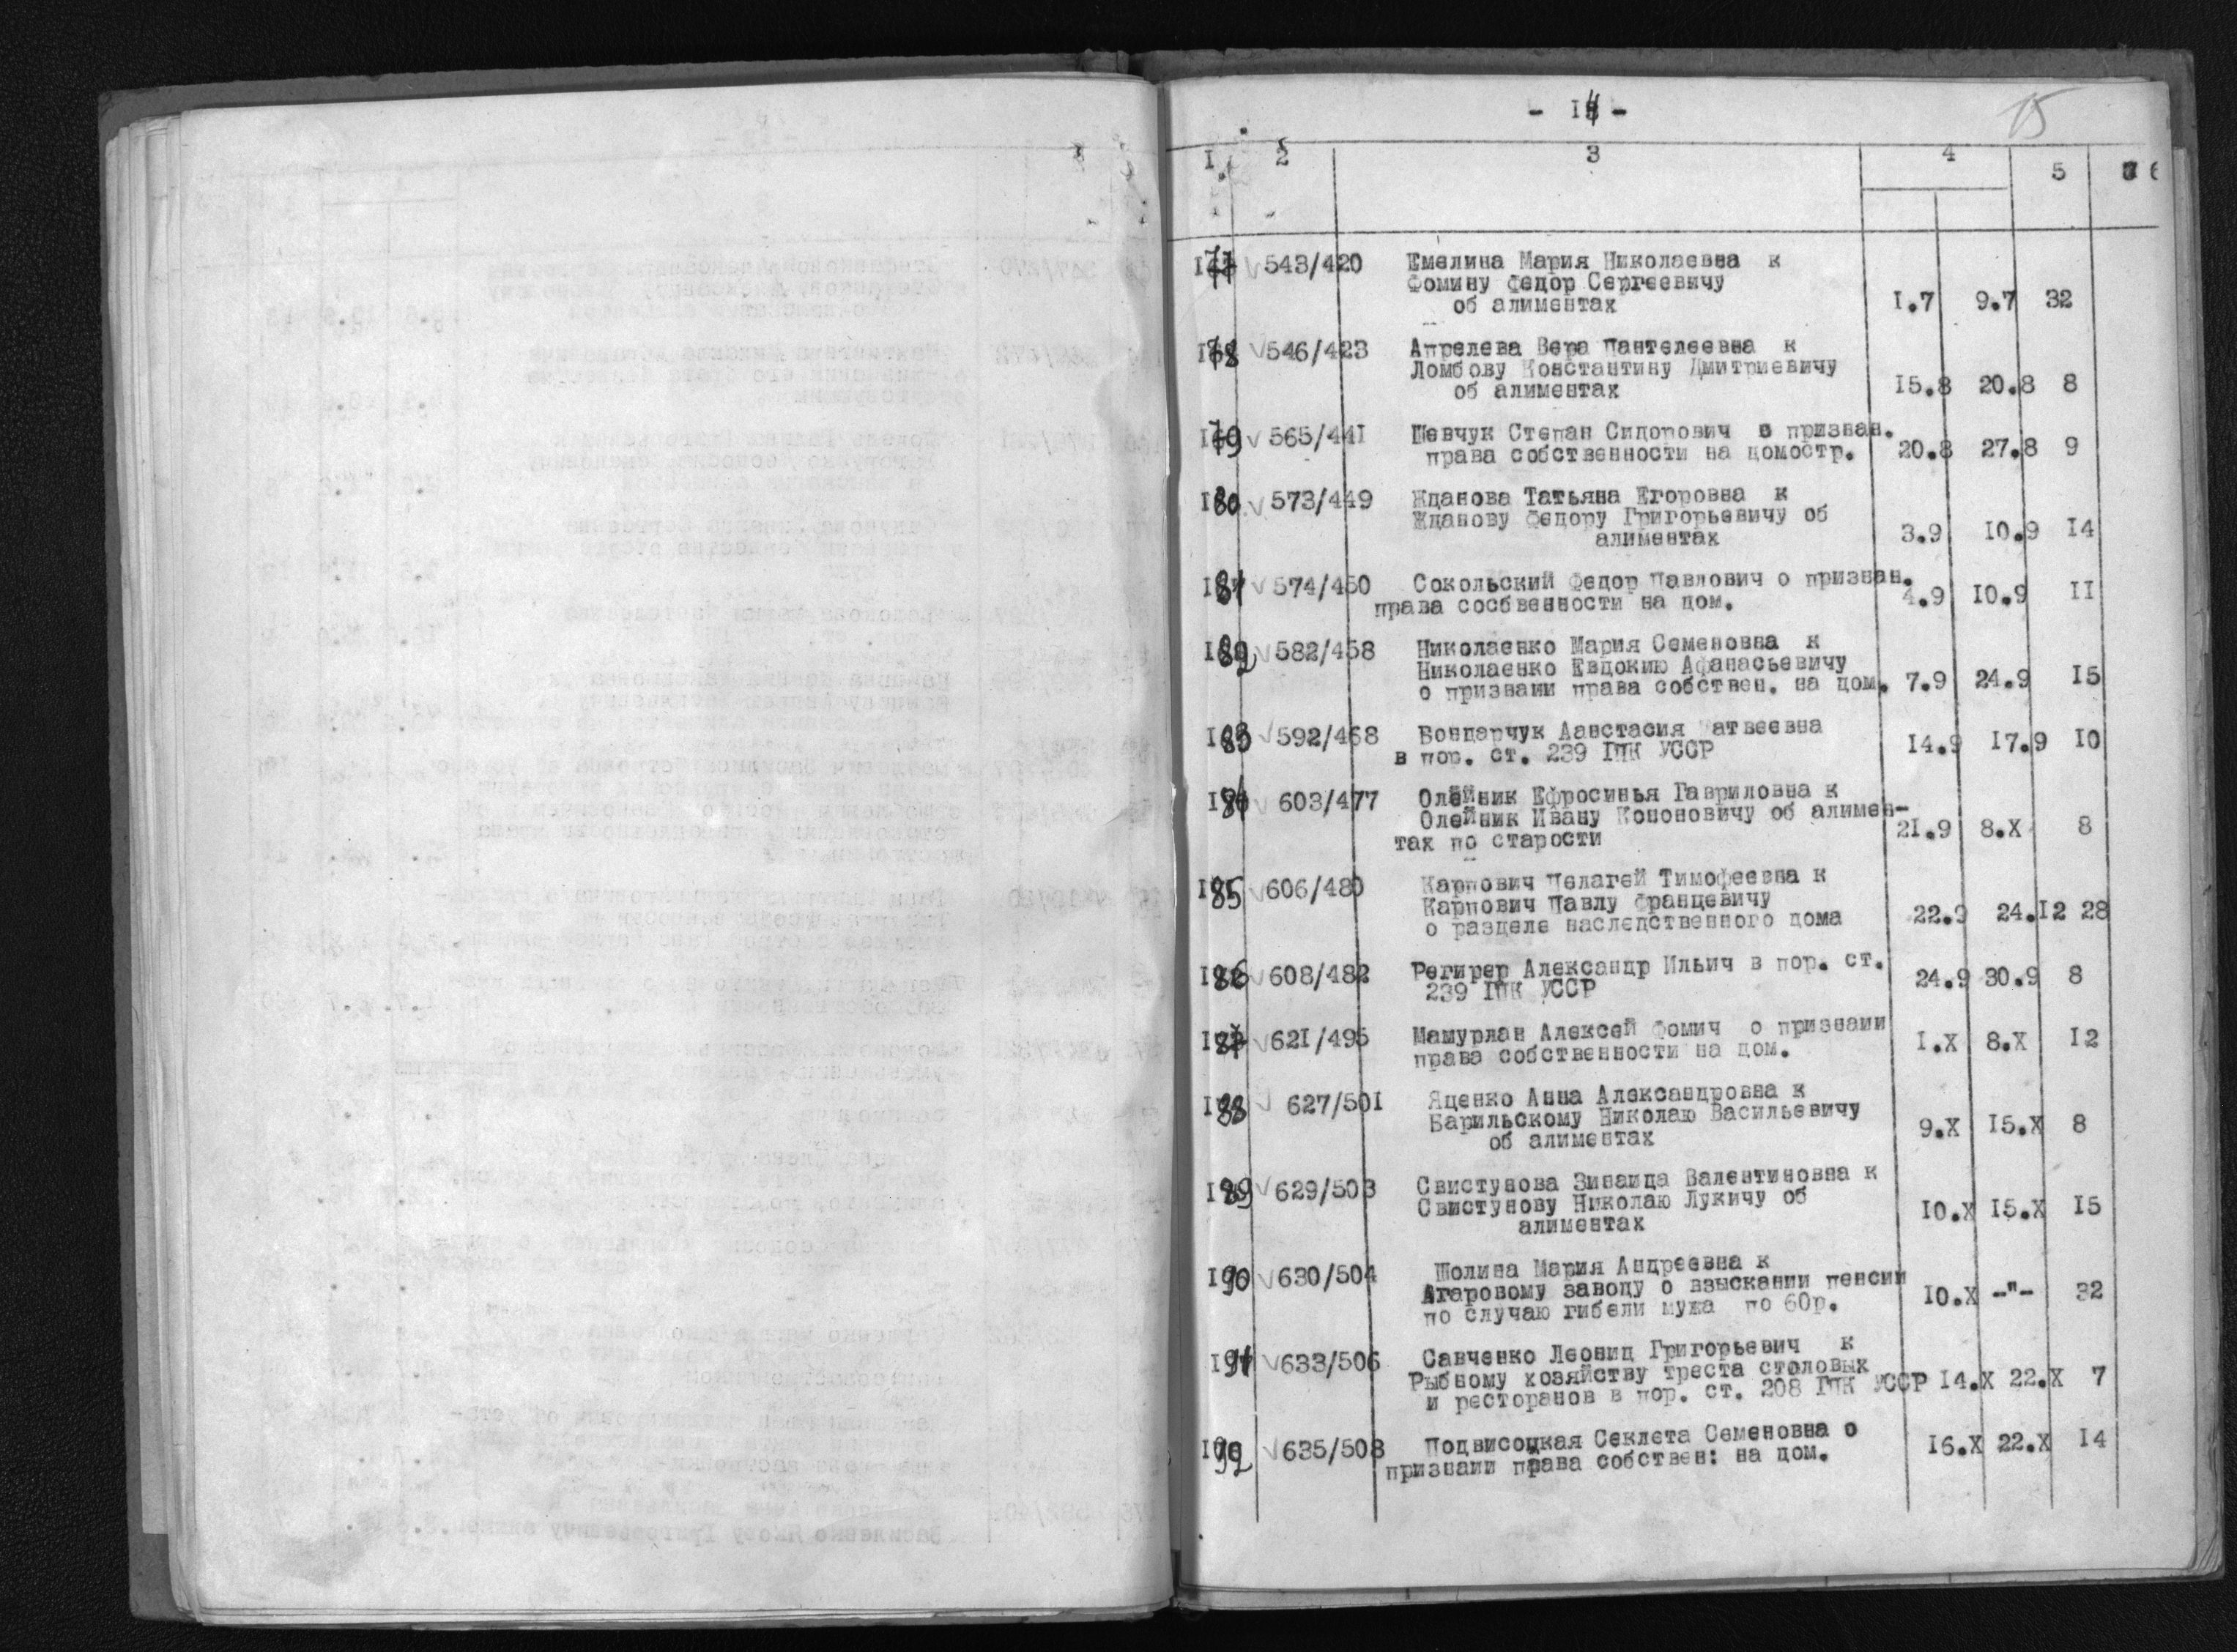 - 14 -
15
1 2 3 4 5 6
177 543/420 Емелина Мария Николаевна к
Фомину Федор Сергеевичу
об алиментах 1.7 9.7 32
178 546/423 Апрелева Вера Пантелеевна к
Ломбову Константину Дмитриевичу
об алиментах 15.8 20.8 8
179 565/441 Шевчук Степан Сидорович о признан.
права собственности на домостр. 20.8 27.8 9
180 573/449 Жданова Татьяна Егоровна к
Жданову Федору Григорьевичу об
алиментах 3.9 10.9 14
181 574/450 Сокольский Федор Павлович о признан.
права сосбвенности на дом. 4.9 10.9 11
182 582/458 Николаенко Мария Семеновна к
Николаенко Евдокию Афанасьевичу
о признани права собствен. на дом. 7.9 24.9 15
183 592/468 Бондарчук Аанстасия Матвеевна
в пор. ст. 239 ГПК УССР 14.9 17.9 10
184 603/477 Олейник Ефросинья Гавриловна к
Олейник Ивану Кононовичу об алимен-
так по старости 21.9 8.X 8
185 606/480 Карпович Пелагей Тимофеевна к
Карпович Павлу Францевичу
о разделе наследственного дома 22.9 24.12 28
186 608/482 Регирер Александр Ильич в пор. ст.
239 ГПК УССР 24.9 30.9 8
187 621/495 Мамурлан Алексей Фомич о признани
права собственности на дом. 1.X 8.X 12
188 627/501 Яценко Анна Александровна к
Барильскому Николаю Васильевичу
об алиментах 9.X 15.X 8
189 629/503 Свистунова Зинаида Валентиновна к
Свистунову Николаю Лукичу об
алиментах 10.X 15.X 15
190 630/504 Шолина Мария Андреевна к
Агаровому заводу о взыскании пенсии
по случаю гибели мужа по 60р. 10.X -"- 32
191 633/506 Савченко Леонид Григорьевич к
Рыбному хозяйству треста столовых
и ресторанов в пор. ст. 208 ГПК УССР 14.X 22.X 7
192 635/508 Подвисоцкая Секлета Семеновна о
признани права собствен: на дом. 16.X 22.X 14